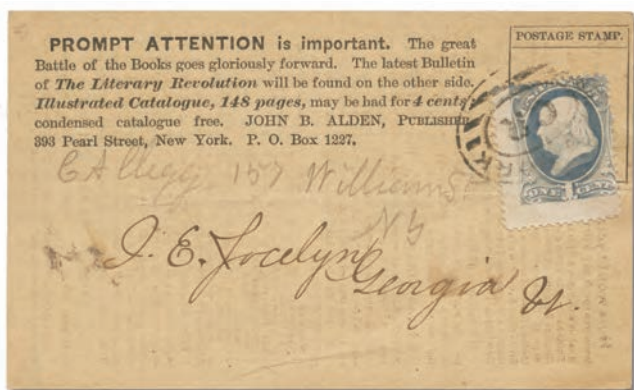 PROMPT ATTENTION is important. The great
Battle of the Books goes gloriously forward. The latest Bulletin
of The Literary Revolution will be found on the other side.
Illustrated Catalogue, 148 pages, may be had for 4 cents;
condensed catalogue free. JOHN B. ALDEN, PUBLISHER,
393 Pearl Street, New York. P. O. Box 1227.
POSTAGE STAMP.
157 William St
NY
J. E. Jocelyn
Georgia Vt.
ONE CENT